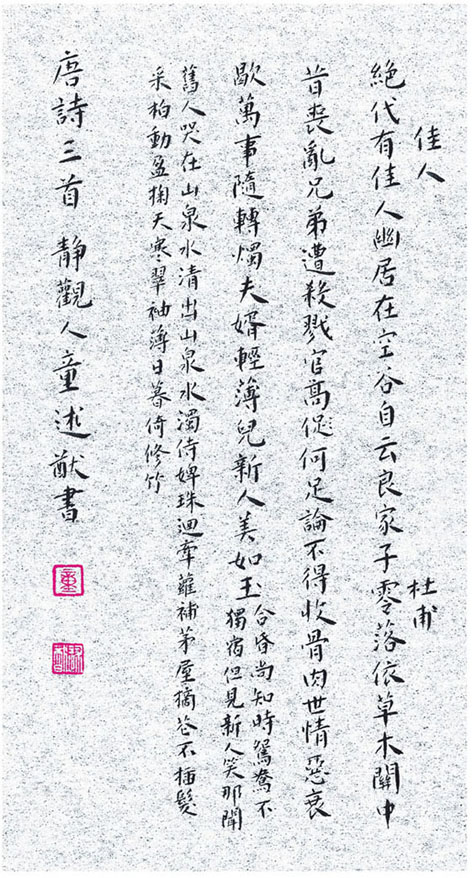 佳人 杜甫
絕代有佳人幽居在空谷自云良家子零落依草木關中
昔喪亂兄弟遭殺戮官高何足論不得收骨肉世情惡衰
歇萬事隨轉燭夫婿輕薄兒新人美如玉
合昏尚知時鴛鴦不
獨宿但見新人笑那聞
舊人哭在山泉水清出山泉水濁侍婢珠迴牽蘿補茅屋摘花不插髮
采柏動盈掬天寒翠袖薄日暮倚修竹
唐詩三首 靜觀人童述猷書
童